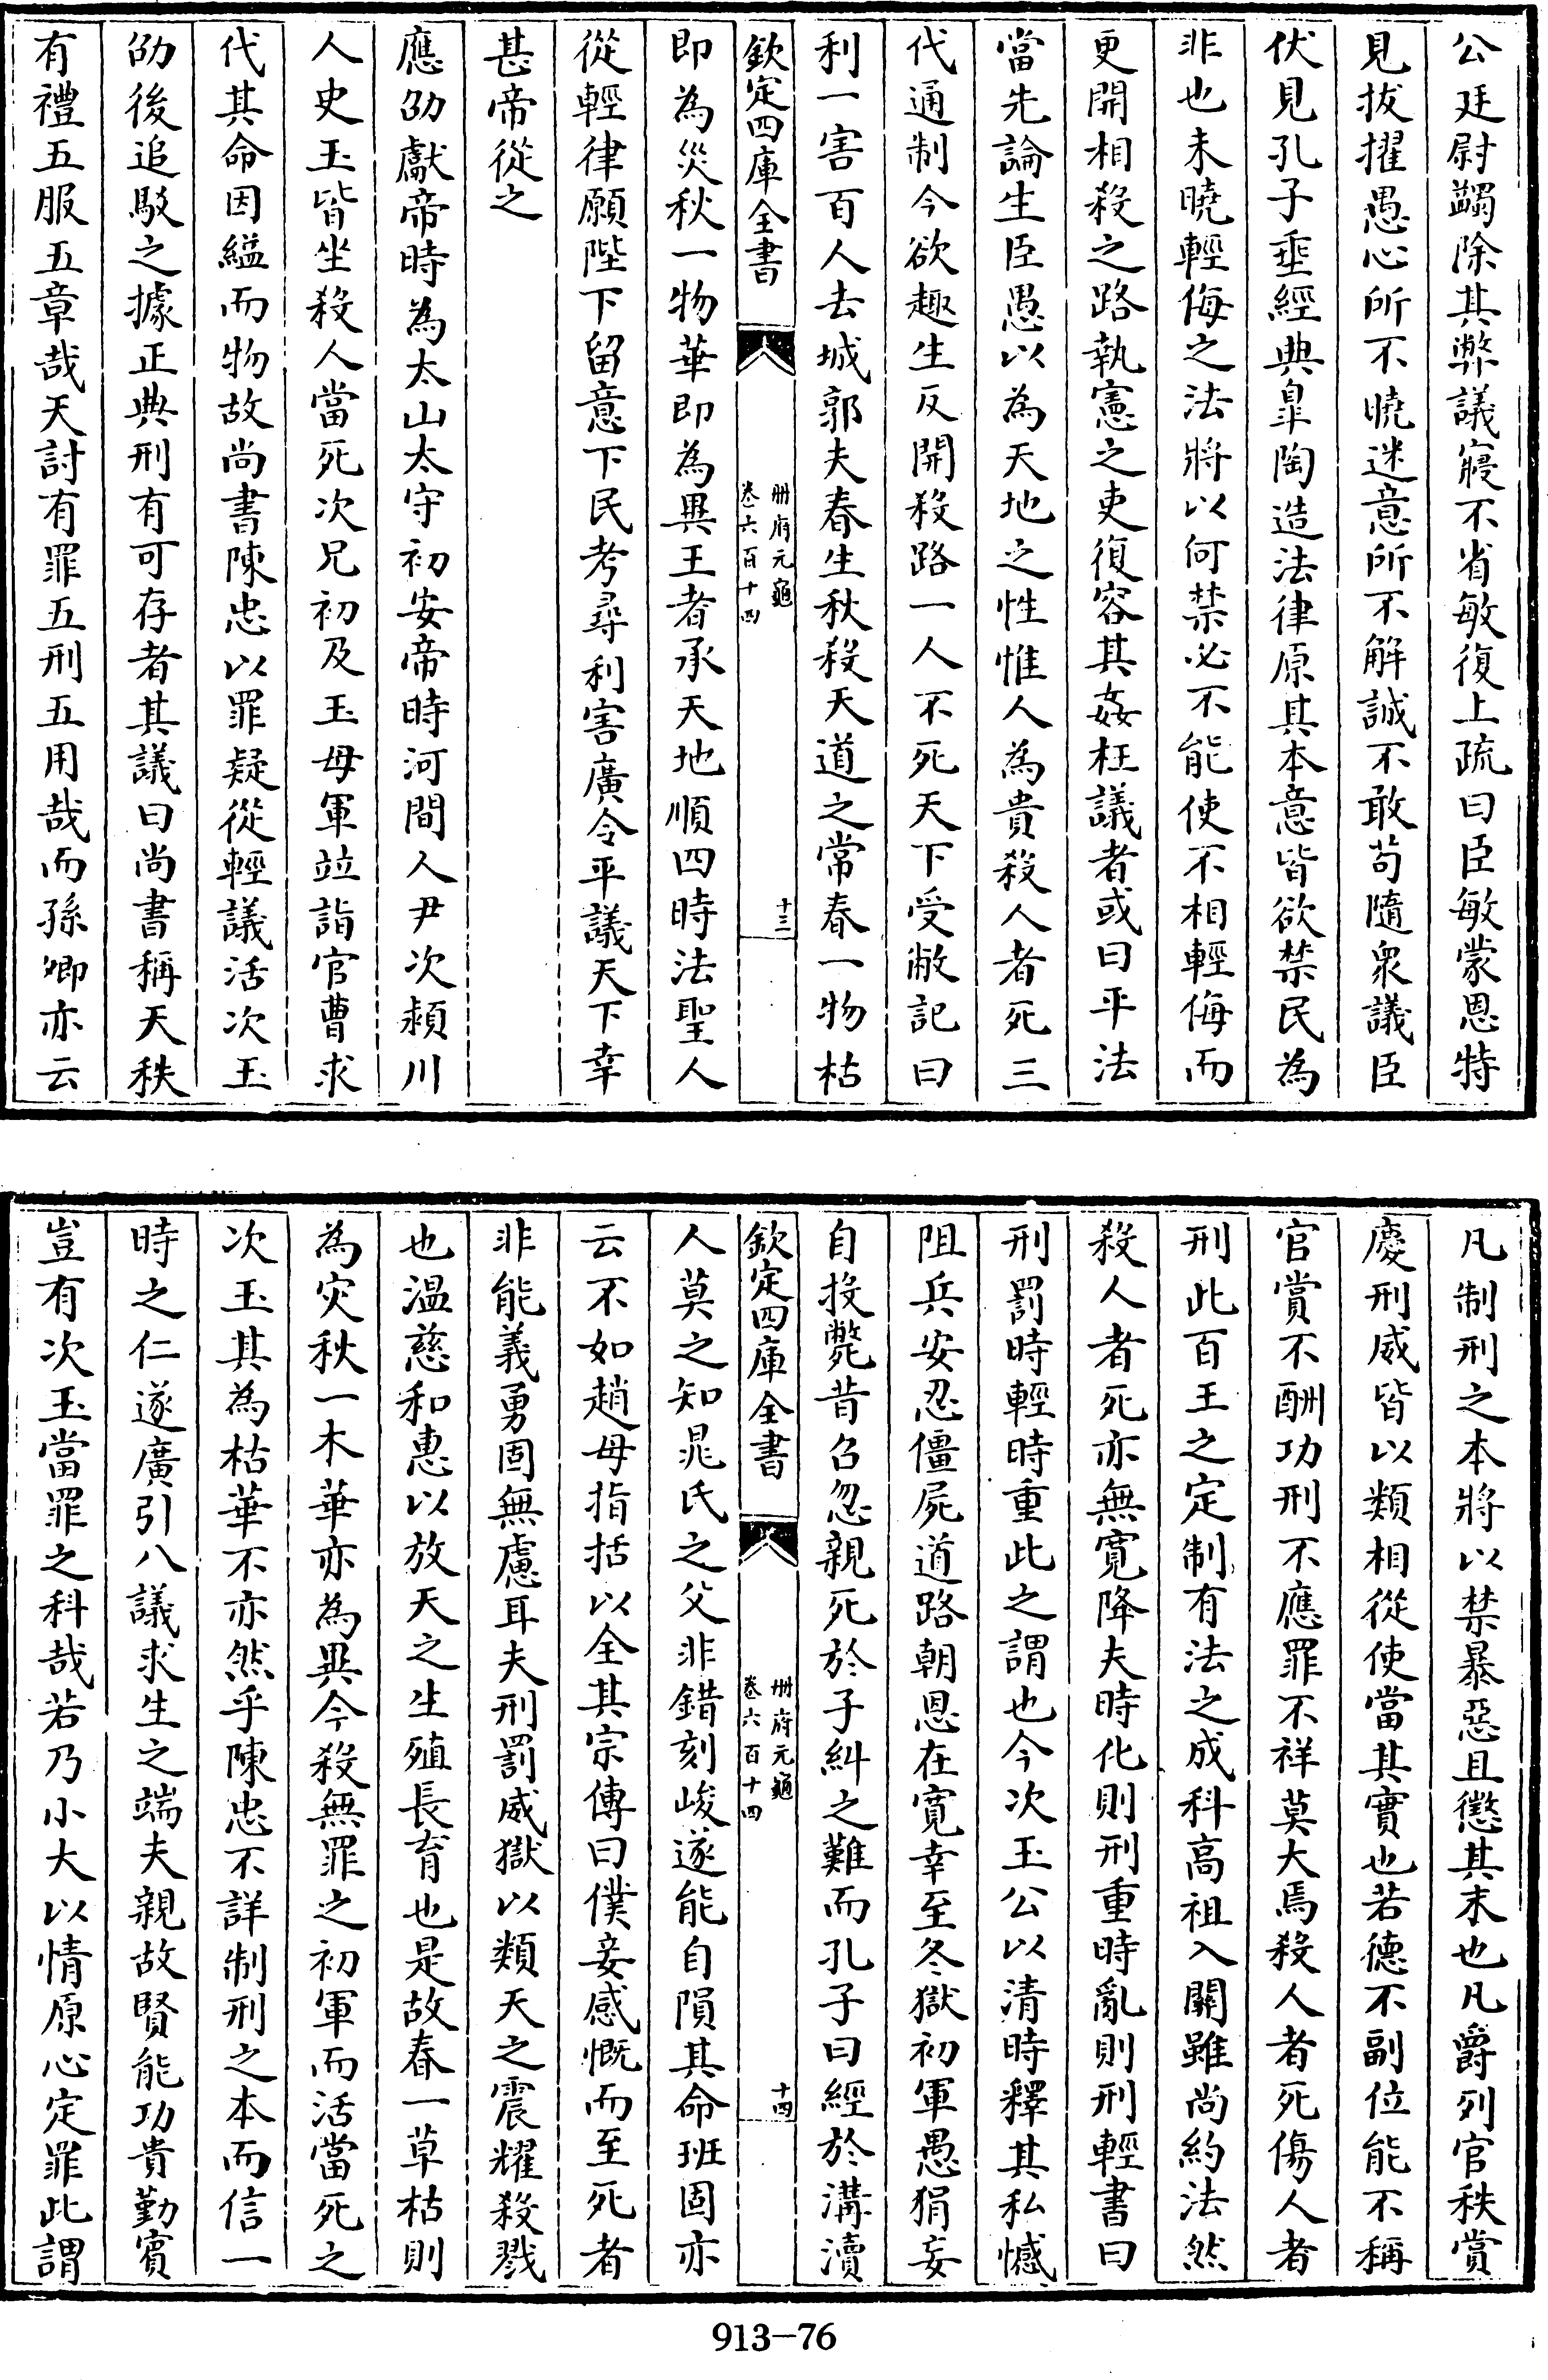 公廷尉蠲除其弊議寢不省敏復上疏曰臣敏蒙恩特
見拔擢愚心所不曉迷意所不解誠不敢苟隨衆議臣
伏見孔子垂經典臯陶造法律原其本意皆欲禁民為
非也未曉輕侮之法將以何禁必不能使不相輕侮而
更開相殺之路執憲之吏復容其姦枉議者或曰平法
當先論生臣愚以為天地之性惟人為貴殺人者死三
代通制今欲趣生反開殺路一人不死天下受敝記曰
利一害百人去城郭夫春生秋殺天道之常春一物枯
欽定四庫全書
冊府元龜
卷六百十四
十三
即為災秋一物華即為異王者承天地順四時法聖人
從輕律願陛下留意下民考尋利害廣令平議天下幸
甚帝從之
應劭獻帝時為太山太守初安帝時河間人尹次潁川
人史玉皆坐殺人當死次兄初及玉母軍竝詣官曹求
代其命因縊而物故尚書陳忠以罪疑從輕議活次玉
劭後追駮之據正典刑有可存者其議曰尚書稱天秩
有禮五服五章哉天討有罪五刑五用哉而孫卿亦云
凡制刑之本將以禁暴惡且懲其末也凡爵列官秩賞
慶刑威皆以類相從使當其實也若德不副位能不稱
官賞不酬功刑不應罪不祥莫大焉殺人者死傷人者
刑此百王之定制有法之成科高祖入關雖尚約法然
殺人者死亦無寛降夫時化則刑重時亂則刑輕書曰
刑罰時輕時重此之謂也今次玉公以清時釋其私憾
阻兵安忍僵屍道路朝恩在寛幸至冬獄初軍愚狷妄
自投斃昔召忽親死於子糾之難而孔子曰經於溝瀆
欽定四庫全書
冊府元龜
卷六百十四
十四
人莫之知晁氏之父非錯刻峻遂能自隕其命班固亦
云不如趙母指括以全其宗傳曰僕妾感慨而至死者
非能義勇固無慮耳夫刑罰威獄以類天之震耀殺戮
也溫慈和惠以放天之生殖長育也是故春一草枯則
為災秋一木華亦為異今殺無罪之初軍而活當死之
次玉其為枯華不亦然乎陳忠不詳制刑之本而信一
時之仁遂廣引八議求生之端夫親故賢能功貴勤賓
豈有次玉當罪之科哉若乃小大以情原心定罪此謂
913-76